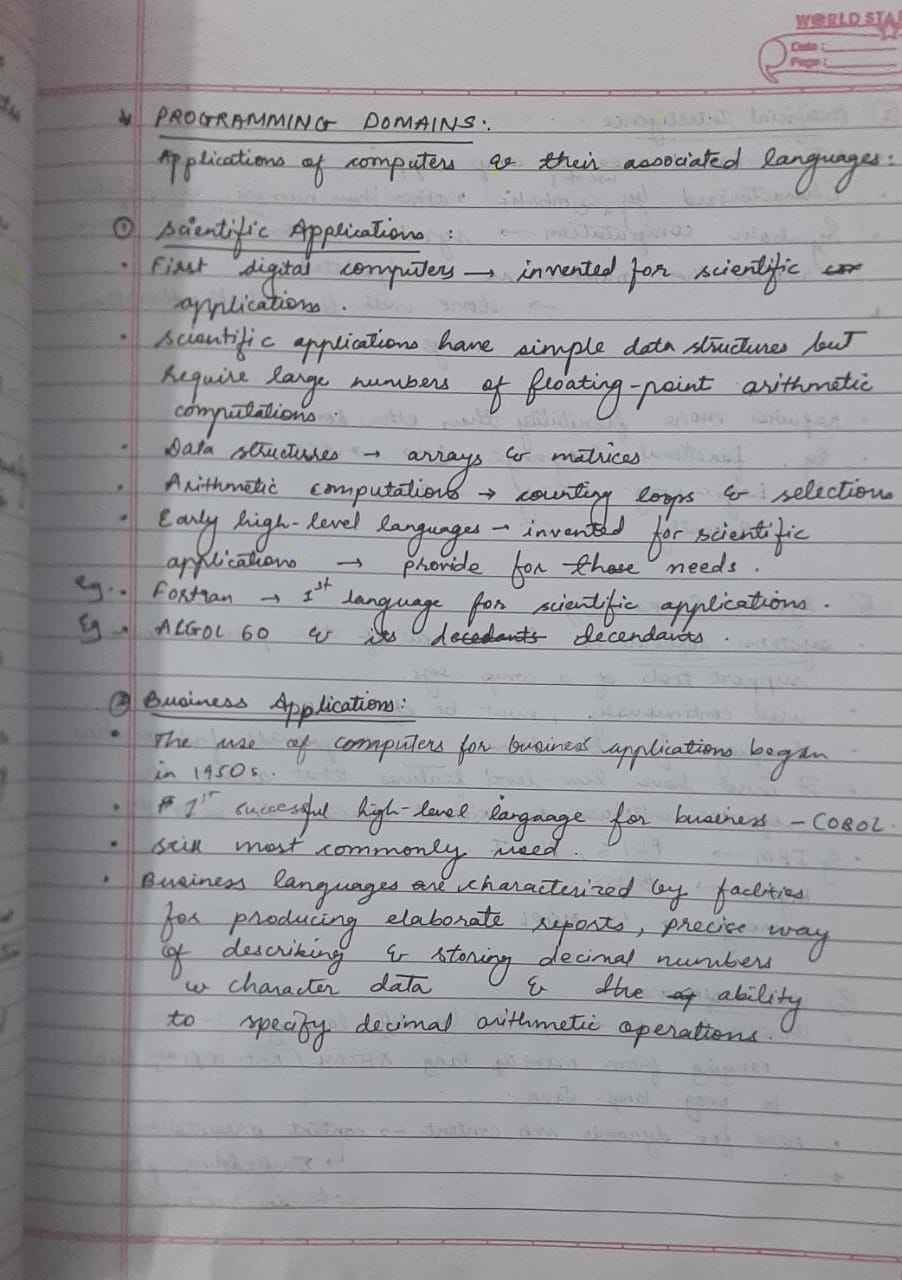 WORLD STA
Date :
Page :
* PROGRAMMING DOMAINS:
Applications of computers & their associated languages:
① Scientific Applications :
• First digital computers → invented for scientific
applications.
• Scientific applications have simple data structures but
require large numbers of floating-point arithmetic
computations.
• Data structures → arrays & matrices
• Arithmetic computations → counting loops & selections
• Early high-level languages → invented for scientific
applications → provide for those needs.
eg. • Fortran → 1st language for scientific applications.
Eg • ALGOL 60 & its decendants.
② Business Applications:
• The use of computers for business applications began
in 1950s.
• 1st successful high-level langaage for business - COBOL.
• Still most commonly used.
• Business languages are characterized by faclities
for producing elaborate reports, precise way
of describing & storing decimal numbers
w character data & the ability
to specify decimal arithmetic operations.